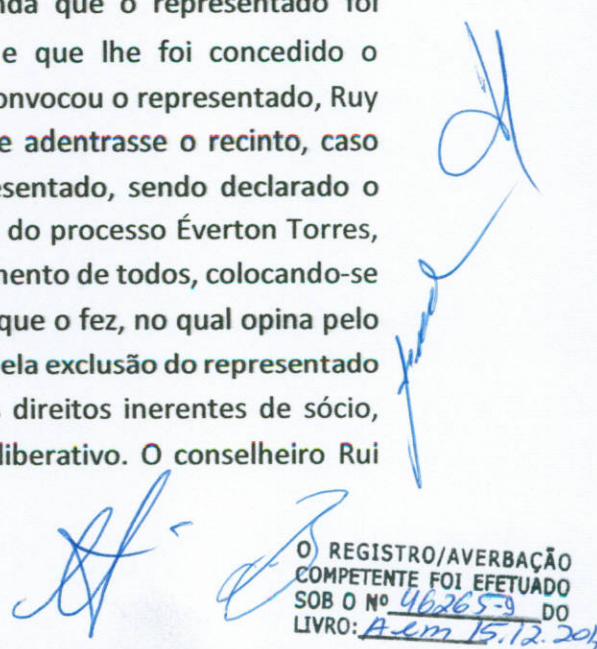 nda que o representado foi
e que lhe foi concedido o
onvocou o representado, Ruy
e adentrasse o recinto, caso
esentado, sendo declarado o
do processo Éverton Torres,
mento de todos, colocando-se
que o fez, no qual opina pelo
ela exclusão do representado
s direitos inerentes de sócio,
liberativo. O conselheiro Rui
O REGISTRO/AVERBAÇÃO
COMPETENTE FOI EFETUADO
SOB O Nº 46265-9 DO
LIVRO: A em 15.12.201